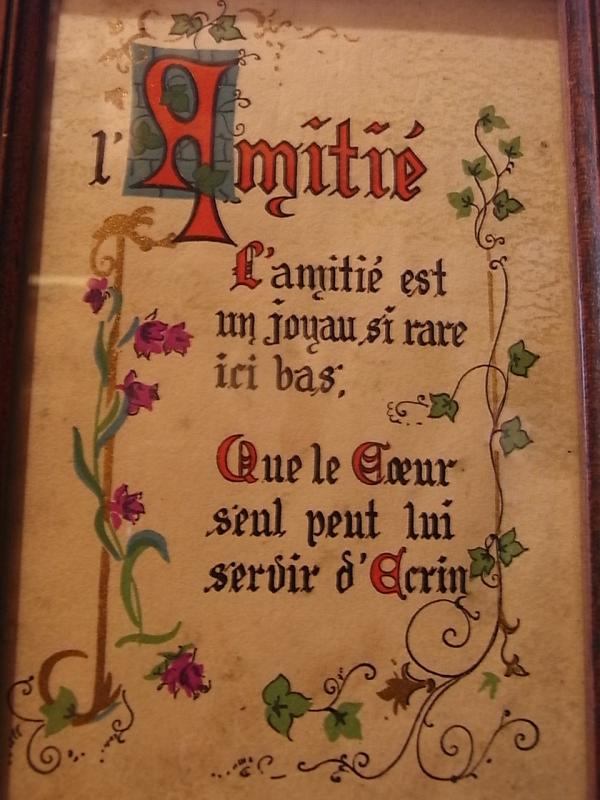 l'Amitié
L'amitié est
un joyau si rare
ici bas;
Que le Cœur
seul peut lui
servir d'Ecrin